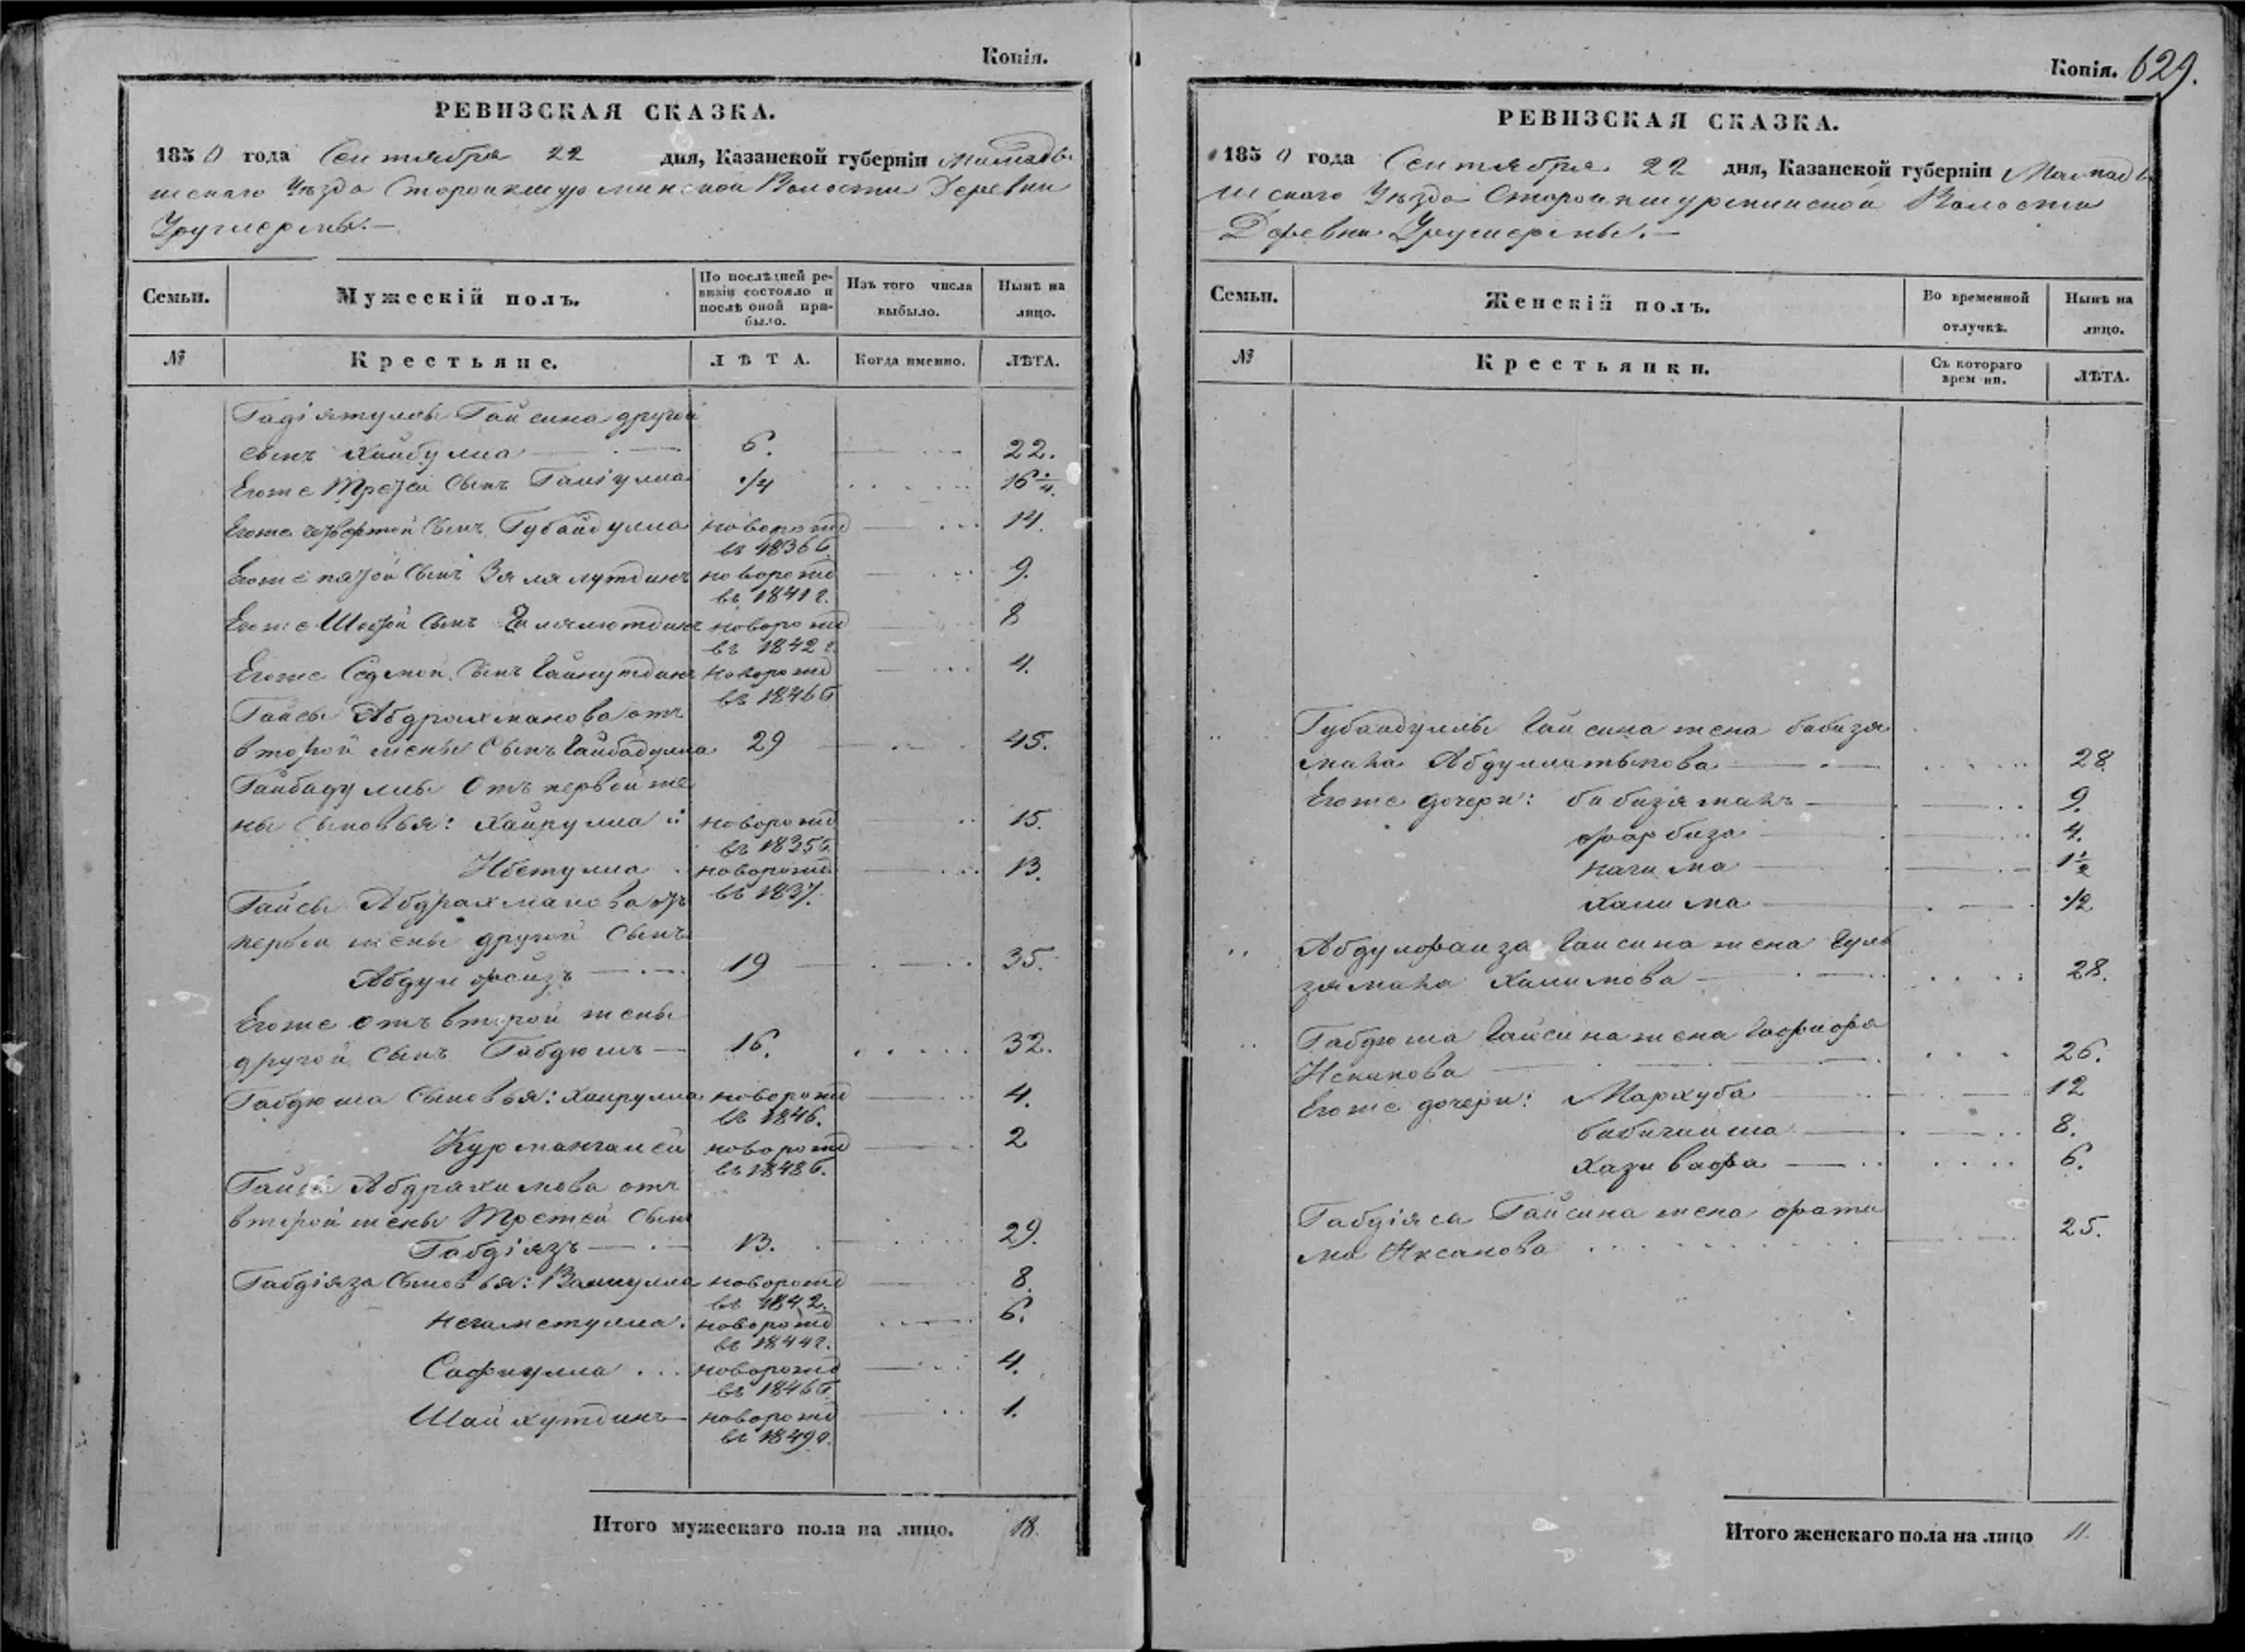 Копія.
РЕВИЗСКАЯ СКАЗКА.
1850 года Сентября 22 дня, Казанской губерніи Мамады
шскаго Уѣзда Староикшурминской Волости Деревни
Семьи.
Мужескій полъ.
По послѣдней ре-
визіи состояло и
послѣ оной при-
было.
Изъ того числа
выбыло.
Нынѣ на
лицо.
№
Крестьяне.
ЛѢТА.
Когда именно.
ЛѢТА.
Гадіятуллы Гайсина другой
сынъ Хайбулла 6. 22.
Егоже Третей Сынъ Галіулла 1/4 16 1/4.
Егоже четвертой Сынъ Губайдулла новорожд 14.
въ 1836г.
Егоже пятой Сынъ Зялялутдинъ новорожд 9.
въ 1841г.
Егоже Шестой Сынъ новорожд 8
въ 1842г.
Егоже Седмой Сынъ Гайнутдинъ новорожд 4.
въ 1846г
Гайсы Абдрахманова отъ
второй жены Сынъ Гайбадулла 29 45.
Гайбадуллы Отъ первой же
ны Сыновья: Хайрулла новорожд 15.
въ 1835г.
Ибетулла новорожд 13.
въ 1837.
Гайсы Абдрахманова отъ
первой жены другой Сынъ
Абдулфаизъ 19 35.
Егоже отъ второй жены
другой сынъ Габдюшъ 16. 32.
Габдюша Сыновья: Хайрулла новорожд 4.
въ 1846.
Курмангалей новорожд 2
въ 1848г.
Гайсы Абдрахимова отъ
второй жены Третей Сынъ
Габдіязъ 13. 29.
Габдіяза Сыновья: Валиулла новорожд 8.
въ 1842.
Негаметулла. новорожд 6.
въ 1844г.
Сафиулла новорожд 4.
въ 1846г
Шайхутдинъ новорожд 1.
въ 1849г.
Итого мужескаго пола на лицо. 18.
Копія. 629.
РЕВИЗСКАЯ СКАЗКА.
1850 года Сентября 22 дня, Казанской губерніи Мамады
шскаго Уѣзда Староикшурминской Волости
Семьи.
Женскій полъ.
Во временной
отлучкѣ.
Нынѣ на
лицо.
№
Крестьянки.
Съ котораго
времени.
ЛѢТА.
Губайдуллы Гайсина жена бибизя
мала Абдуллатыпова 28.
Егоже дочери: бибизямалъ 9.
фарбиза 4.
Нагима 1 1/2
Халима 1/2
Абдулфаиза Гайсина жена Гуль
зямала Халимова 28.
Габдюша Гайсина жена
26.
Егоже дочери: Мархуба 12
8.
Хазивафа 6.
Габдіяса Гайсина жена фати
ма Иксанова 25.
Итого женскаго пола на лицо 11.